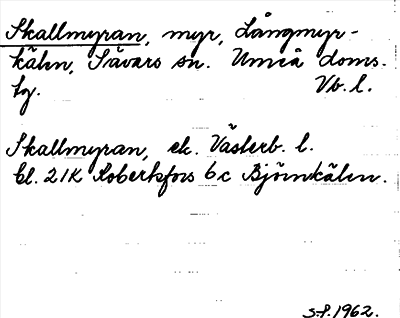 Skallmyran, myr, Långmyr-
kälen, Sävars sn. Umeå doms.
tg. Vb. l.
Skallmyran, ek. Västerb. l.
bl. 21K Robertsfors 6c Björnkälen.
S.f. 1962.